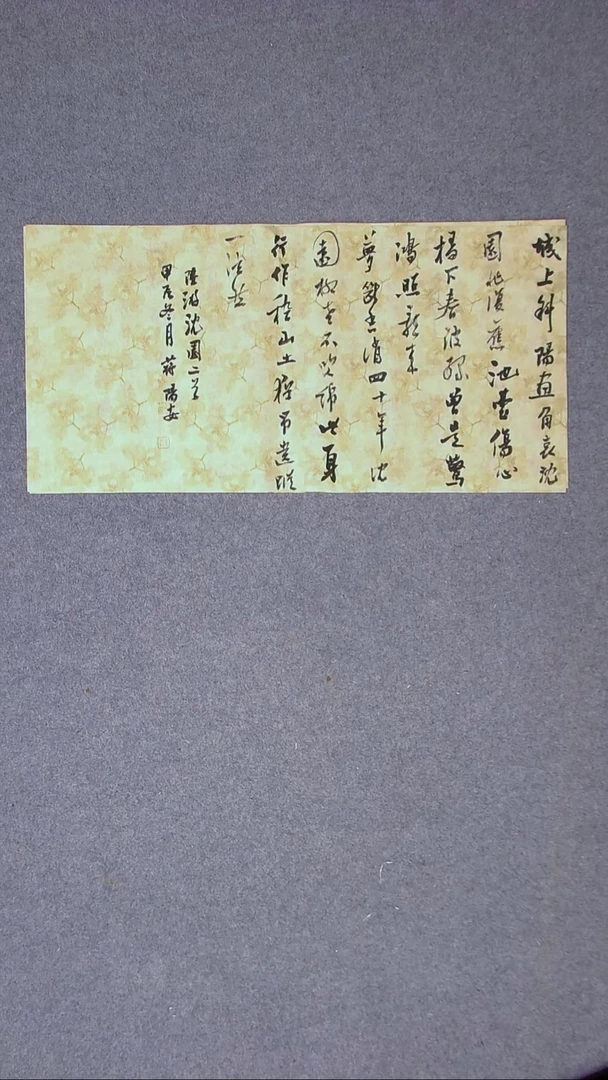 城上斜陽画角哀沈
園非復舊池台傷心
橋下春波綠曽是驚
鴻照影来
夢斷香消四十年沈
園柳老不吹綿此身
行作稽山土猶吊遺蹤
一泫然
陸游沈園二首
甲辰冬月蔣陽安